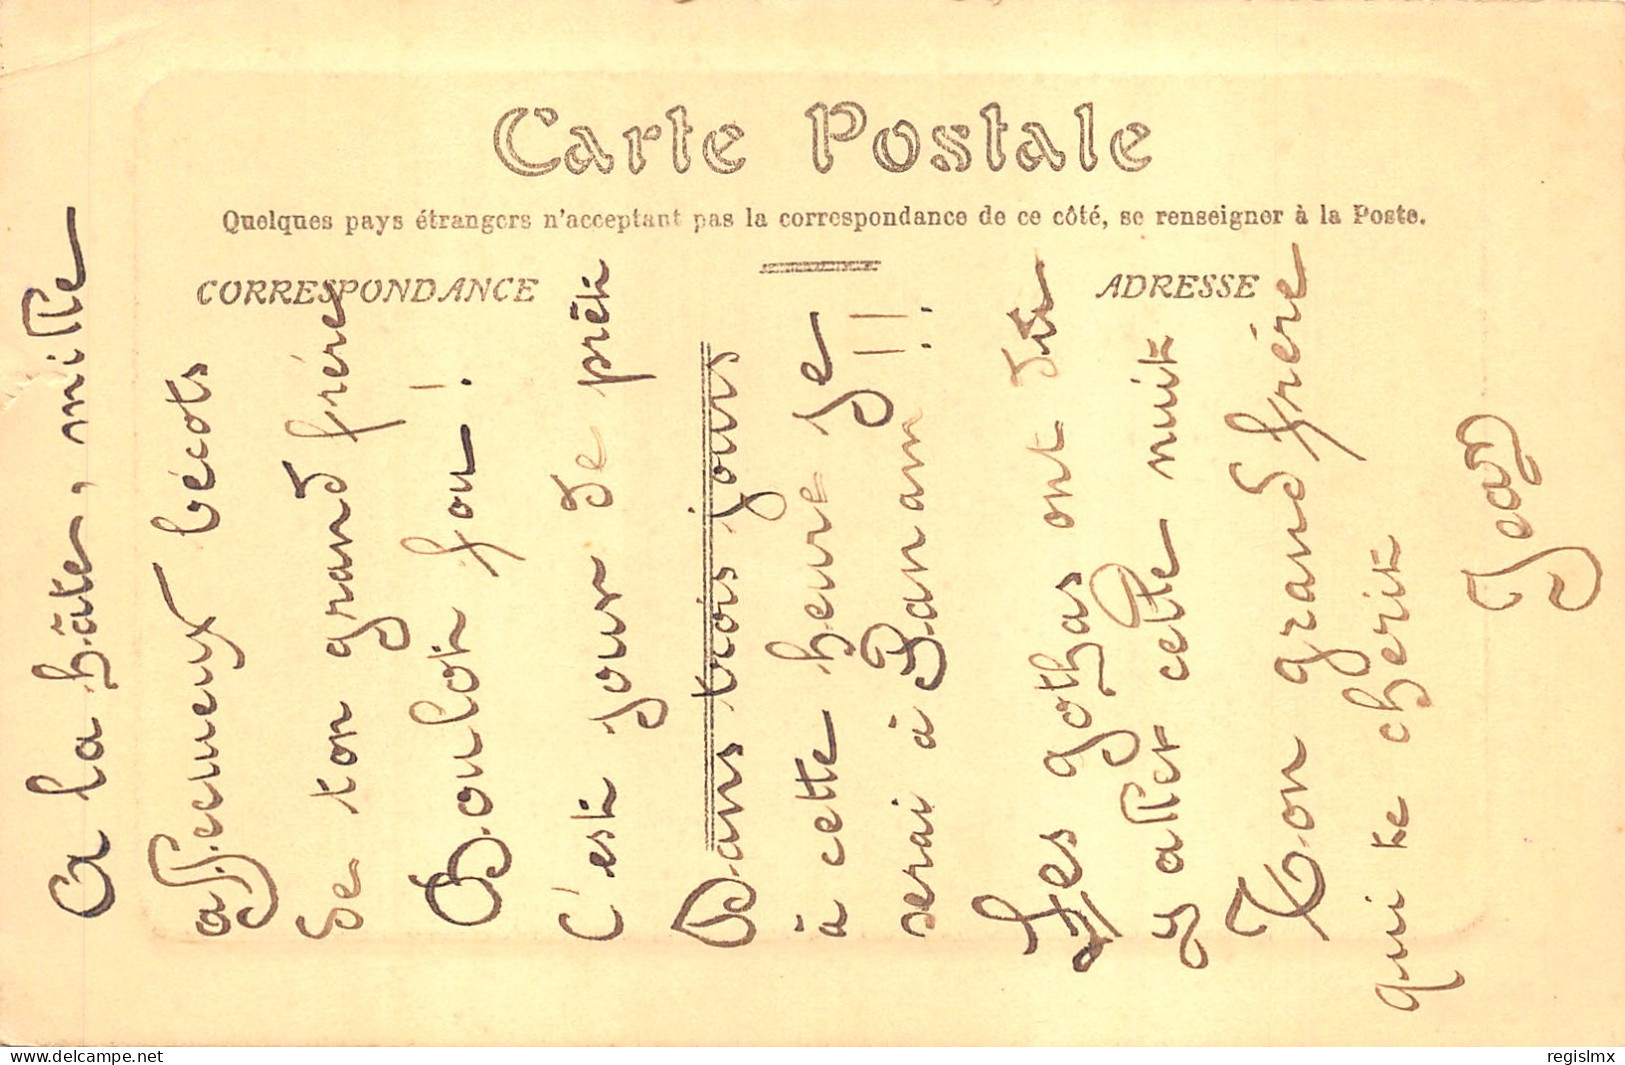 Carte Postale
Quelques pays étrangers n'acceptant pas la correspondance de ce côté, se renseigner à la Poste.
CORRESPONDANCE
ADRESSE
A la hâte, mille
affectueux bécots
de ton grand frère
Boulot fou !
C'est jour de prêt
Dans trois jours
à cette heure je
serai à Panam !!
Les gothas ont dû
y aller cette nuit
Ton grand frère
qui te chérit
Jean
www.delcampe.net
regislmx